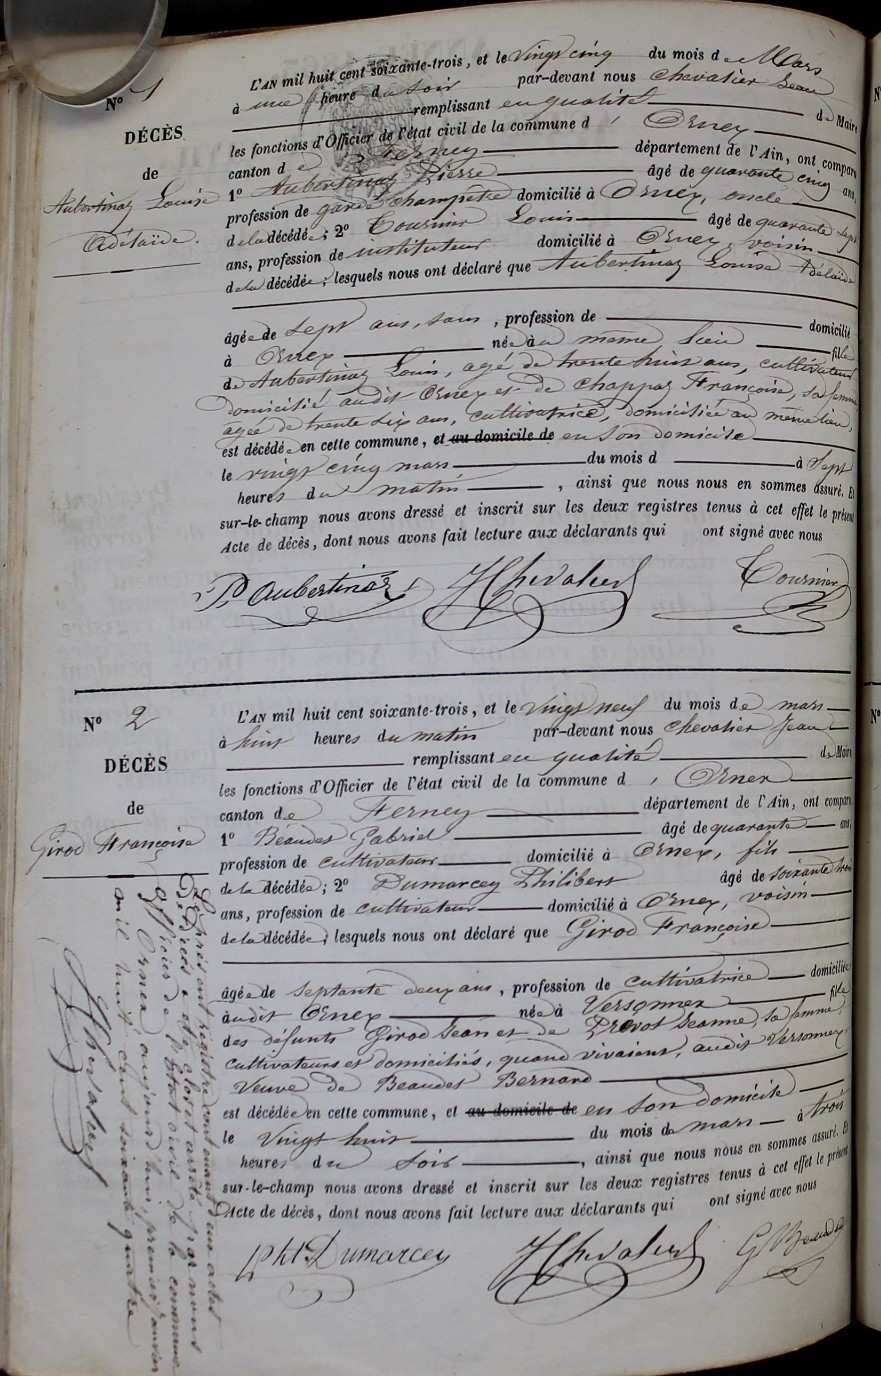 N° 1
DÉCÈS
de
Aubertinaz Louise
Adélaïde.
L'AN mil huit cent soixante-trois, et le Vingt cinq du mois de Mars
à une heure du soir par-devant nous Chevalier Jean
remplissant en qualité de Maire
les fonctions d'Officier de l'état civil de la commune d' Ornex
canton de Ferney département de l'Ain, ont comparu
1° Aubertinaz Pierre âgé de quarante cinq ans,
profession de garde champêtre domicilié à Ornex, oncle
de la décédée; 2° Tournier Louis âgé de quarante sept
ans, profession de instituteur domicilié à Ornex, voisin
de la décédée; lesquels nous ont déclaré que Aubertinaz Louise Adélaïde
âgée de sept ans, sans, profession de domicilié
à Ornex née à au même lieu fille
de Aubertinaz Louis, agé de trente huit ans, cultivateur
domicilié audit Ornex et de Chappaz Françoise, sa femme
agée de trente six ans, cultivatrice, domiciliée au même lieu,
est décédée en cette commune, et au domicile de en son domicile
le vingt cinq mars du mois d à sept
heures du matin, ainsi que nous nous en sommes assuré. Et
sur-le-champ nous avons dressé et inscrit sur les deux registres tenus à cet effet le présent
Acte de décès, dont nous avons fait lecture aux déclarants qui ont signé avec nous
P. Aubertinaz JChevalier Tournier
N° 2
DÉCÈS
de
Girod Françoise
L'AN mil huit cent soixante-trois, et le Vingt neuf du mois de mars
à huit heures du matin par-devant nous Chevalier Jean
remplissant en qualité de Maire
les fonctions d'Officier de l'état civil de la commune d' Ornex
canton de Ferney département de l'Ain, ont comparu
1° Beaudet Gabriel âgé de quarante ans,
profession de cultivateur domicilié à Ornex, fils
de la décédée; 2° Dumarcey Philibert âgé de soixante trois
ans, profession de cultivateur domicilié à Ornex, voisin
de la décédée; lesquels nous ont déclaré que Girod Françoise
âgée de septante deux ans, profession de cultivatrice domiciliée
audit Ornex née à Versonnex fille
des défunts Girod Jean et de Prevot Jeanne, sa femme,
cultivateurs et domiciliés, quand vivaient, audit Versonnex,
Veuve de Beaudet Bernard
est décédée en cette commune, et au domicile de en son domicile
le Vingt huit du mois de mars à trois
heures du soir, ainsi que nous nous en sommes assuré. Et
sur-le-champ nous avons dressé et inscrit sur les deux registres tenus à cet effet le présent
Acte de décès, dont nous avons fait lecture aux déclarants qui ont signé avec nous
Pht. Dumarcey JChevalier G Beaudet
Le présent registre contenant deux actes
de Décès a été clos et arrêté par nous
officier de l'Etat civil de la commune
d'Ornex aujourd'hui, premier janvier
mil huit cent soixante quatre
JChevalier